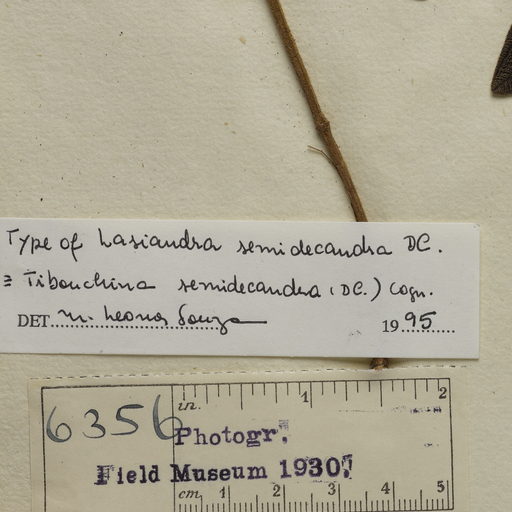 Type of Lasiandra semidecandra DC.
≡ Tibouchina semidecandra (DC.) Cogn.
DET. M. Leonor Souza 1995
6356 in. 1 2
Photogr.
Field Museum 1930
cm 1 2 3 4 5